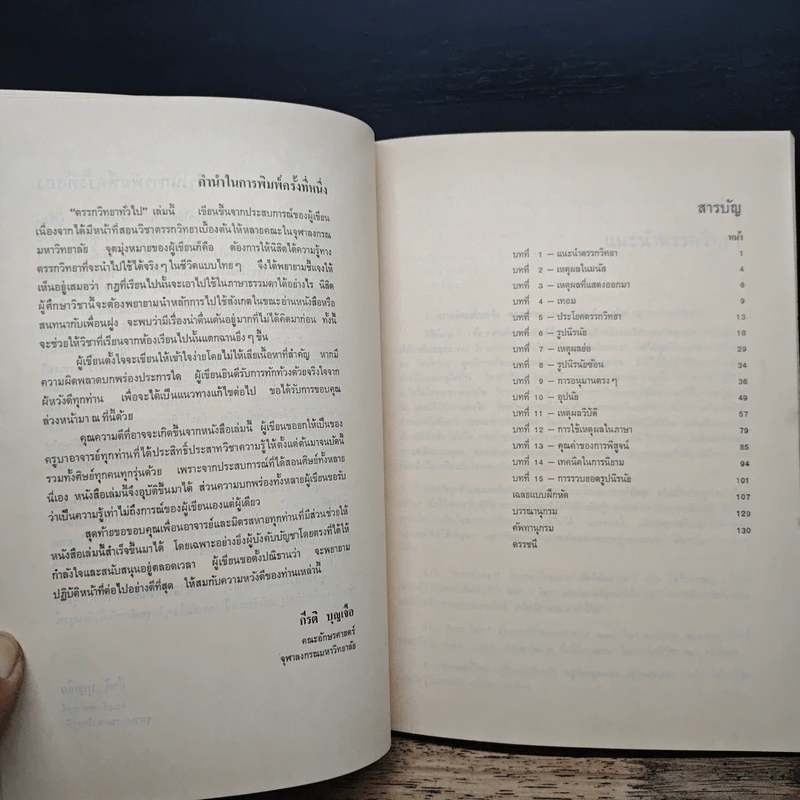 คำนำในการพิมพ์ครั้งที่หนึ่ง
"ตรรกวิทยาทั่วไป" เล่มนี้ เขียนขึ้นจากประสบการณ์ของผู้เขียน
เนื่องจากได้มีหน้าที่สอนวิชาตรรกวิทยาเบื้องต้นให้หลายคณะในจุฬาลงกรณ
มหาวิทยาลัย จุดมุ่งหมายของผู้เขียนก็คือ ต้องการให้นิสิตได้ความรู้ทาง
ตรรกวิทยาที่จะนำไปใช้ได้จริงๆ ในชีวิตแบบไทยๆ จึงได้พยายามชี้แจงให้
เห็นอยู่เสมอว่า กฎที่เรียนไปนั้นจะเอาไปใช้ในภาษาธรรมดาได้อย่างไร นิสิต
ผู้ศึกษาวิชานี้จะต้องพยายามนำหลักการไปใช้สังเกตในขณะอ่านหนังสือหรือ
สนทนากับเพื่อนฝูง จะพบว่ามีเรื่องน่าตื่นเต้นอยู่มากที่ไม่ได้คิดมาก่อน ทั้งนี้
จะช่วยให้วิชาที่เรียนจากห้องเรียนไปนั้นแตกฉานยิ่งๆ ขึ้น
ผู้เขียนตั้งใจจะเขียนให้เข้าใจง่ายโดยไม่ให้เสียเนื้อหาที่สำคัญ หากมี
ความผิดพลาดบกพร่องประการใด ผู้เขียนยินดีรับการทักท้วงด้วยจริงใจจาก
ผู้หวังดีทุกท่าน เพื่อจะได้เป็นแนวทางแก้ไขต่อไป ขอได้รับการขอบคุณ
ล่วงหน้ามา ณ ที่นี้ด้วย
คุณความดีที่อาจจะเกิดขึ้นจากหนังสือเล่มนี้ ผู้เขียนขอยกให้เป็นของ
ครูบาอาจารย์ทุกท่านที่ได้ประสิทธิ์ประสาทวิชาความรู้ให้ตั้งแต่ต้นมาจนบัดนี้
รวมทั้งศิษย์ทุกคนทุกรุ่นด้วย เพราะจากประสบการณ์ที่ได้สอนศิษย์ทั้งหลาย
นี่เอง หนังสือเล่มนี้จึงอุบัติขึ้นมาได้ ส่วนความบกพร่องทั้งหลายผู้เขียนขอรับ
ว่าเป็นความรู้เท่าไม่ถึงการณ์ของผู้เขียนเองแต่ผู้เดียว
สุดท้ายขอขอบคุณเพื่อนอาจารย์และมิตรสหายทุกท่านที่มีส่วนช่วยให้
หนังสือเล่มนี้สำเร็จขึ้นมาได้ โดยเฉพาะอย่างยิ่งผู้บังคับบัญชาโดยตรงที่ได้ให้
กำลังใจและสนับสนุนอยู่ตลอดเวลา ผู้เขียนขอตั้งปณิธานว่า จะพยายาม
ปฏิบัติหน้าที่ต่อไปอย่างดีที่สุด ให้สมกับความหวังดีของท่านเหล่านี้
กีรติ บุญเจือ
คณะอักษรศาสตร์
จุฬาลงกรณมหาวิทยาลัย
สารบัญ
หน้า
บทที่ 1 — แนะนำตรรกวิทยา 1
บทที่ 2 — เหตุผลในมนัส 4
บทที่ 3 — เหตุผลที่แสดงออกมา 6
บทที่ 4 — เทอม 9
บทที่ 5 — ประโยคตรรกวิทยา 13
บทที่ 6 — รูปนิรนัย 18
บทที่ 7 — เหตุผลย่อ 29
บทที่ 8 — รูปนิรนัยซ้อน 34
บทที่ 9 — การอนุมานตรงๆ 36
บทที่ 10 — อุปนัย 49
บทที่ 11 — เหตุผลวิบัติ 57
บทที่ 12 — การใช้เหตุผลในภาษา 79
บทที่ 13 — คุณค่าของการพิสูจน์ 85
บทที่ 14 — เทคนิคในการนิยาม 94
บทที่ 15 — การรวบยอดรูปนิรนัย 101
เฉลยแบบฝึกหัด 107
บรรณานุกรม 129
ศัพทานุกรม 130
ดรรชนี